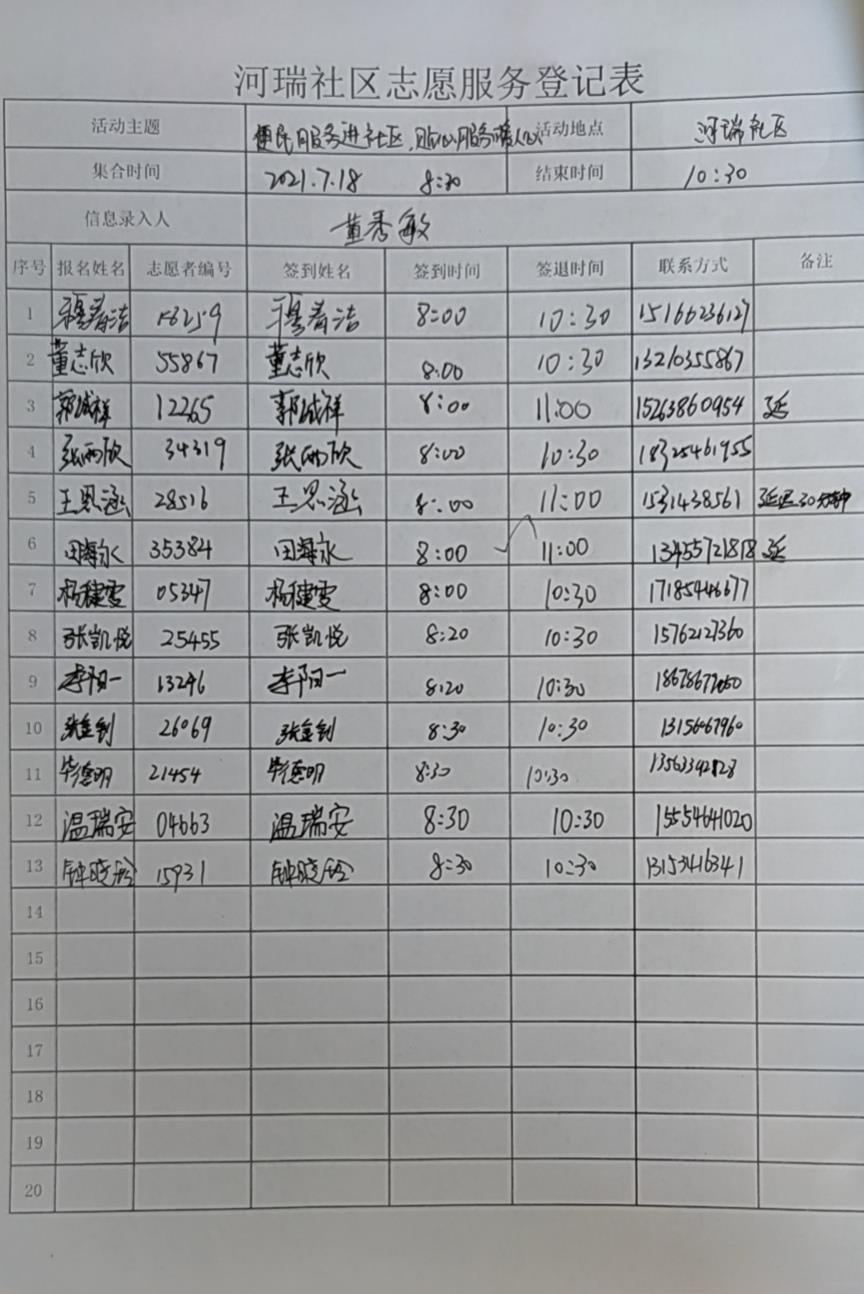 河瑞社区志愿服务登记表
活动主题 便民服务进社区，贴心服务暖人心 活动地点 河瑞社区
集合时间 2021.7.18 8:30 结束时间 10:30
信息录入人 董秀敏
序号 报名姓名 志愿者编号 签到姓名 签到时间 签退时间 联系方式 备注
1 8:00 10:30 15166236127
2 董志欣 55867 董志欣 8:00 10:30 13210355867
3 郭城祥 12265 郭城祥 8:00 11:00 15263860954 延
4 张雨欣 34319 张雨欣 8:00 10:30 18325461955
5 王恩涵 28516 王恩涵 8:00 11:00 1531438561 延迟30分钟
6 田海永 35384 田海永 8:00 11:00 13455721818 延
7 杨健雯 05347 杨健雯 8:00 10:30 17185446677
8 张凯悦 25455 张凯悦 8:20 10:30 15762127360
9 李阳一 13246 李阳一 8:20 10:30
10 张金钊 26069 张金钊 8:30 10:30
11 毕德明 21454 毕德明 8:30 10:30
12 温瑞安 04663 温瑞安 8:30 10:30 15554641020
13 钟晓玲 15931 钟晓玲 8:30 10:30 13153416341
14
15
16
17
18
19
20